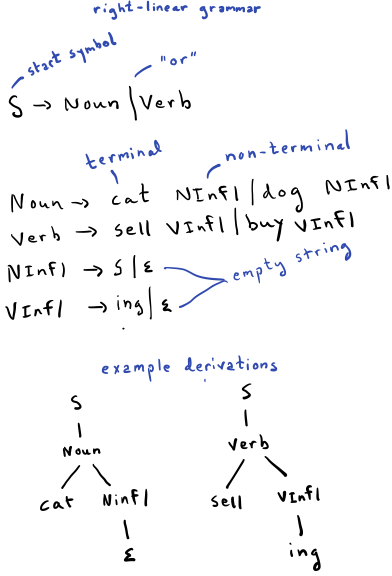 right-linear grammar
start symbol
"or"
S → Noun | Verb
terminal
non-terminal
Noun → cat NInfl | dog NInfl
Verb → sell VInfl | buy VInfl
NInfl → s | ε
empty string
VInfl → ing | ε
example derivations
S S
Noun Verb
cat Ninfl sell VInfl
ε ing